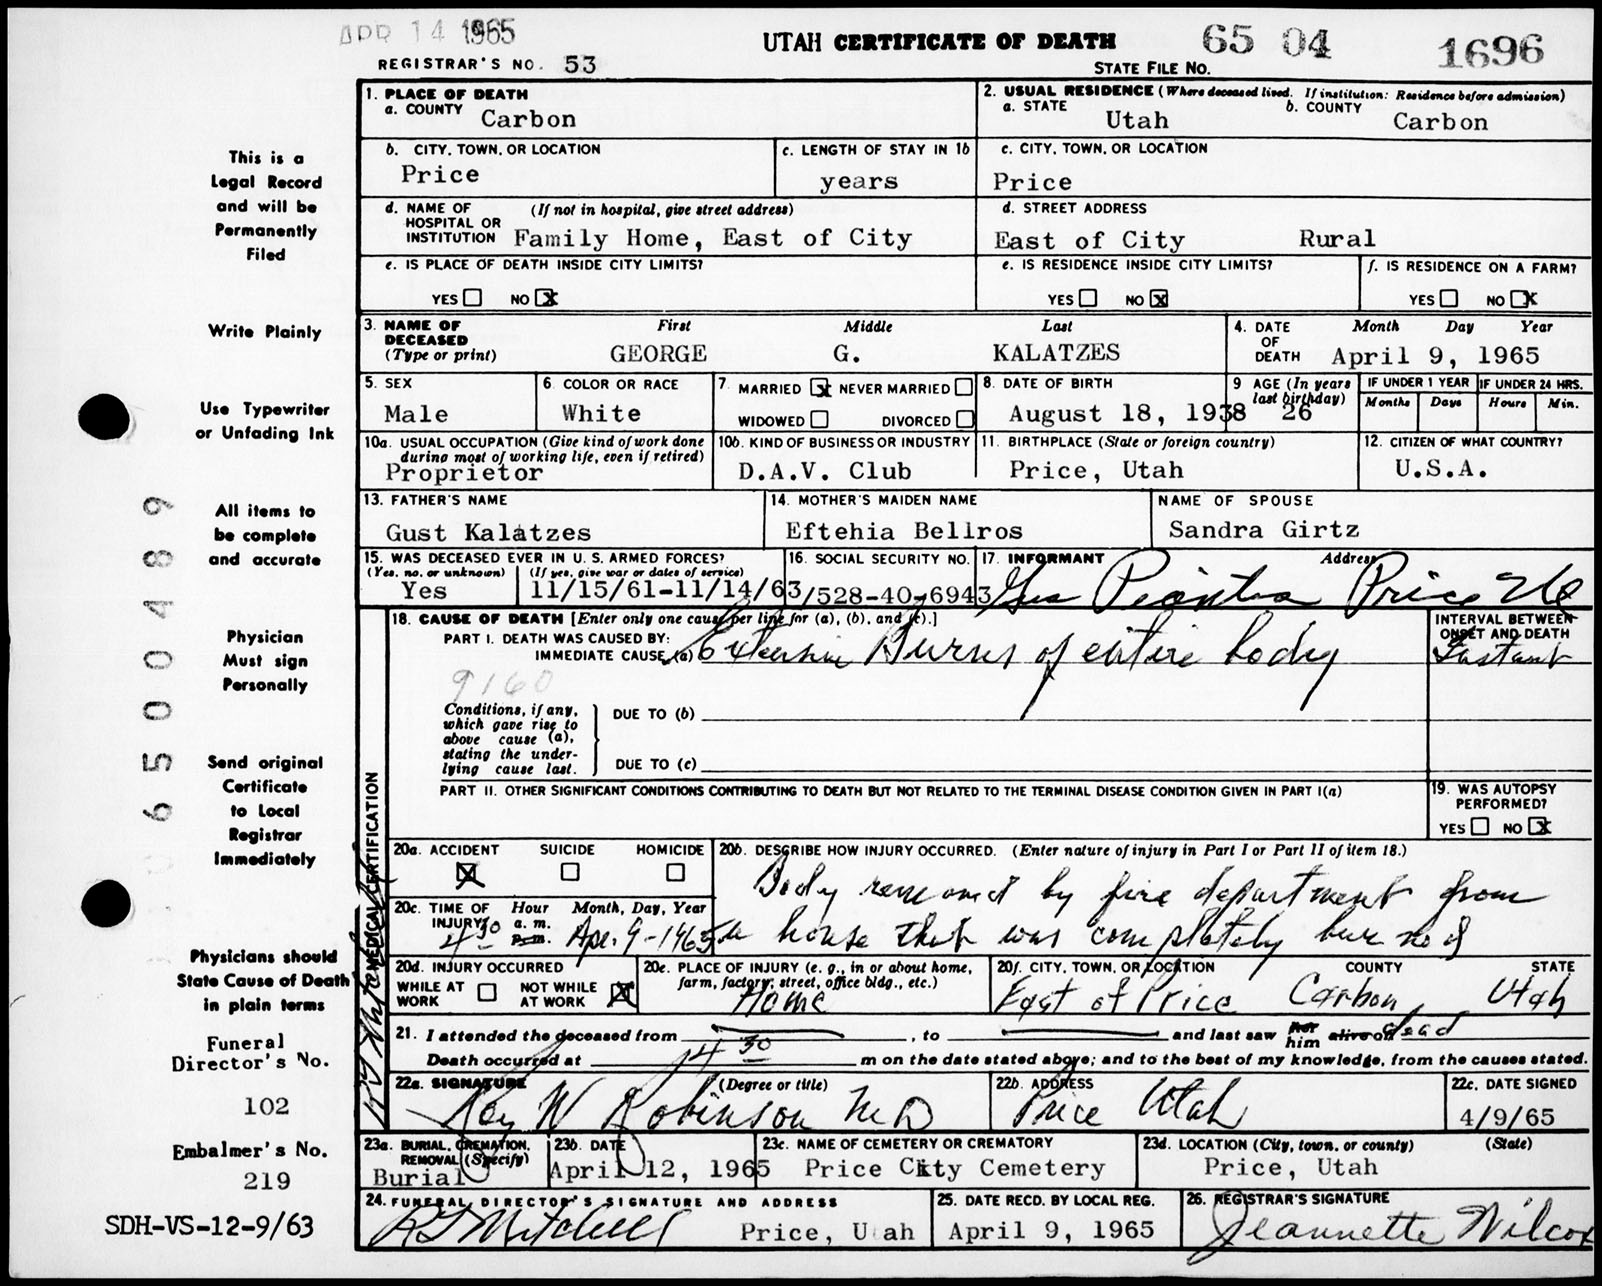 APR 14 1965
UTAH CERTIFICATE OF DEATH 65 04 1696
REGISTRAR'S NO. 53
STATE FILE NO.
This is a
Legal Record
and will be
Permanently
Filed
Write Plainly
Use Typewriter
or Unfading Ink
All items to
be complete
and accurate
Physician
Must sign
Personally
Send original
Certificate
to Local
Registrar
Immediately
Physicians should
State Cause of Death
in plain terms
Funeral
Director's No.
102
Embalmer's No.
219
SDH-VS-12-9/63
6500489
1. PLACE OF DEATH
a. COUNTY Carbon
2. USUAL RESIDENCE (Where deceased lived. If institution: Residence before admission)
a. STATE Utah b. COUNTY Carbon
b. CITY, TOWN, OR LOCATION
Price
c. LENGTH OF STAY IN 1b
years
c. CITY, TOWN, OR LOCATION
Price
d. NAME OF (If not in hospital, give street address)
HOSPITAL OR
INSTITUTION Family Home, East of City
d. STREET ADDRESS
East of City Rural
e. IS PLACE OF DEATH INSIDE CITY LIMITS?
YES NO X
e. IS RESIDENCE INSIDE CITY LIMITS?
YES NO X
f. IS RESIDENCE ON A FARM?
YES NO X
3. NAME OF First Middle Last
DECEASED
(Type or print) GEORGE G. KALATZES
4. DATE Month Day Year
OF
DEATH April 9, 1965
5. SEX
Male
6. COLOR OR RACE
White
7. MARRIED X NEVER MARRIED
WIDOWED DIVORCED
8. DATE OF BIRTH
August 18, 1938
9 AGE (In years
last birthday)
26
IF UNDER 1 YEAR
Months Days
IF UNDER 24 HRS.
Hours Min.
10a. USUAL OCCUPATION (Give kind of work done
during most of working life, even if retired)
Proprietor
10b. KIND OF BUSINESS OR INDUSTRY
D.A.V. Club
11. BIRTHPLACE (State or foreign country)
Price, Utah
12. CITIZEN OF WHAT COUNTRY?
U.S.A.
13. FATHER'S NAME
Gust Kalatzes
14. MOTHER'S MAIDEN NAME
Eftehia Bellros
NAME OF SPOUSE
Sandra Girtz
15. WAS DECEASED EVER IN U. S. ARMED FORCES?
(Yes, no, or unknown) (If yes, give war or dates of service)
Yes 11/15/61-11/14/63
16. SOCIAL SECURITY NO.
528-40-6943
17. INFORMANT Address
Price
MEDICAL CERTIFICATION
18. CAUSE OF DEATH [Enter only one cause per line for (a), (b), and (c).]
PART I. DEATH WAS CAUSED BY:
IMMEDIATE CAUSE (a) Extensive Burns of entire body
INTERVAL BETWEEN
ONSET AND DEATH
Instant
9160
Conditions, if any,
which gave rise to
above cause (a),
stating the under-
lying cause last.
DUE TO (b)
DUE TO (c)
PART II. OTHER SIGNIFICANT CONDITIONS CONTRIBUTING TO DEATH BUT NOT RELATED TO THE TERMINAL DISEASE CONDITION GIVEN IN PART I(a)
19. WAS AUTOPSY
PERFORMED?
YES NO X
20a. ACCIDENT SUICIDE HOMICIDE
X
20b. DESCRIBE HOW INJURY OCCURRED. (Enter nature of injury in Part I or Part II of item 18.)
Body removed by fire department from
a house that was completely burned
20c. TIME OF Hour Month, Day, Year
INJURY a. m.
4 30 p. m. Apr. 9-1965
20d. INJURY OCCURRED
WHILE AT
WORK
NOT WHILE
AT WORK X
20e. PLACE OF INJURY (e. g., in or about home,
farm, factory, street, office bldg., etc.)
Home
20f. CITY, TOWN, OR LOCATION COUNTY STATE
East of Price Carbon Utah
21. I attended the deceased from , to and last saw her him alive on dead
Death occurred at 4 30 m on the date stated above; and to the best of my knowledge, from the causes stated.
22a. SIGNATURE (Degree or title)
Roy W Robinson MD
22b. ADDRESS
Price Utah
22c. DATE SIGNED
4/9/65
23a. BURIAL, CREMATION,
REMOVAL (Specify)
Burial
23b. DATE
April 12, 1965
23c. NAME OF CEMETERY OR CREMATORY
Price City Cemetery
23d. LOCATION (City, town, or county) (State)
Price, Utah
24. FUNERAL DIRECTOR'S SIGNATURE AND ADDRESS
Mitchell Price, Utah
25. DATE RECD. BY LOCAL REG.
April 9, 1965
26. REGISTRAR'S SIGNATURE
Jeannette Wilcox